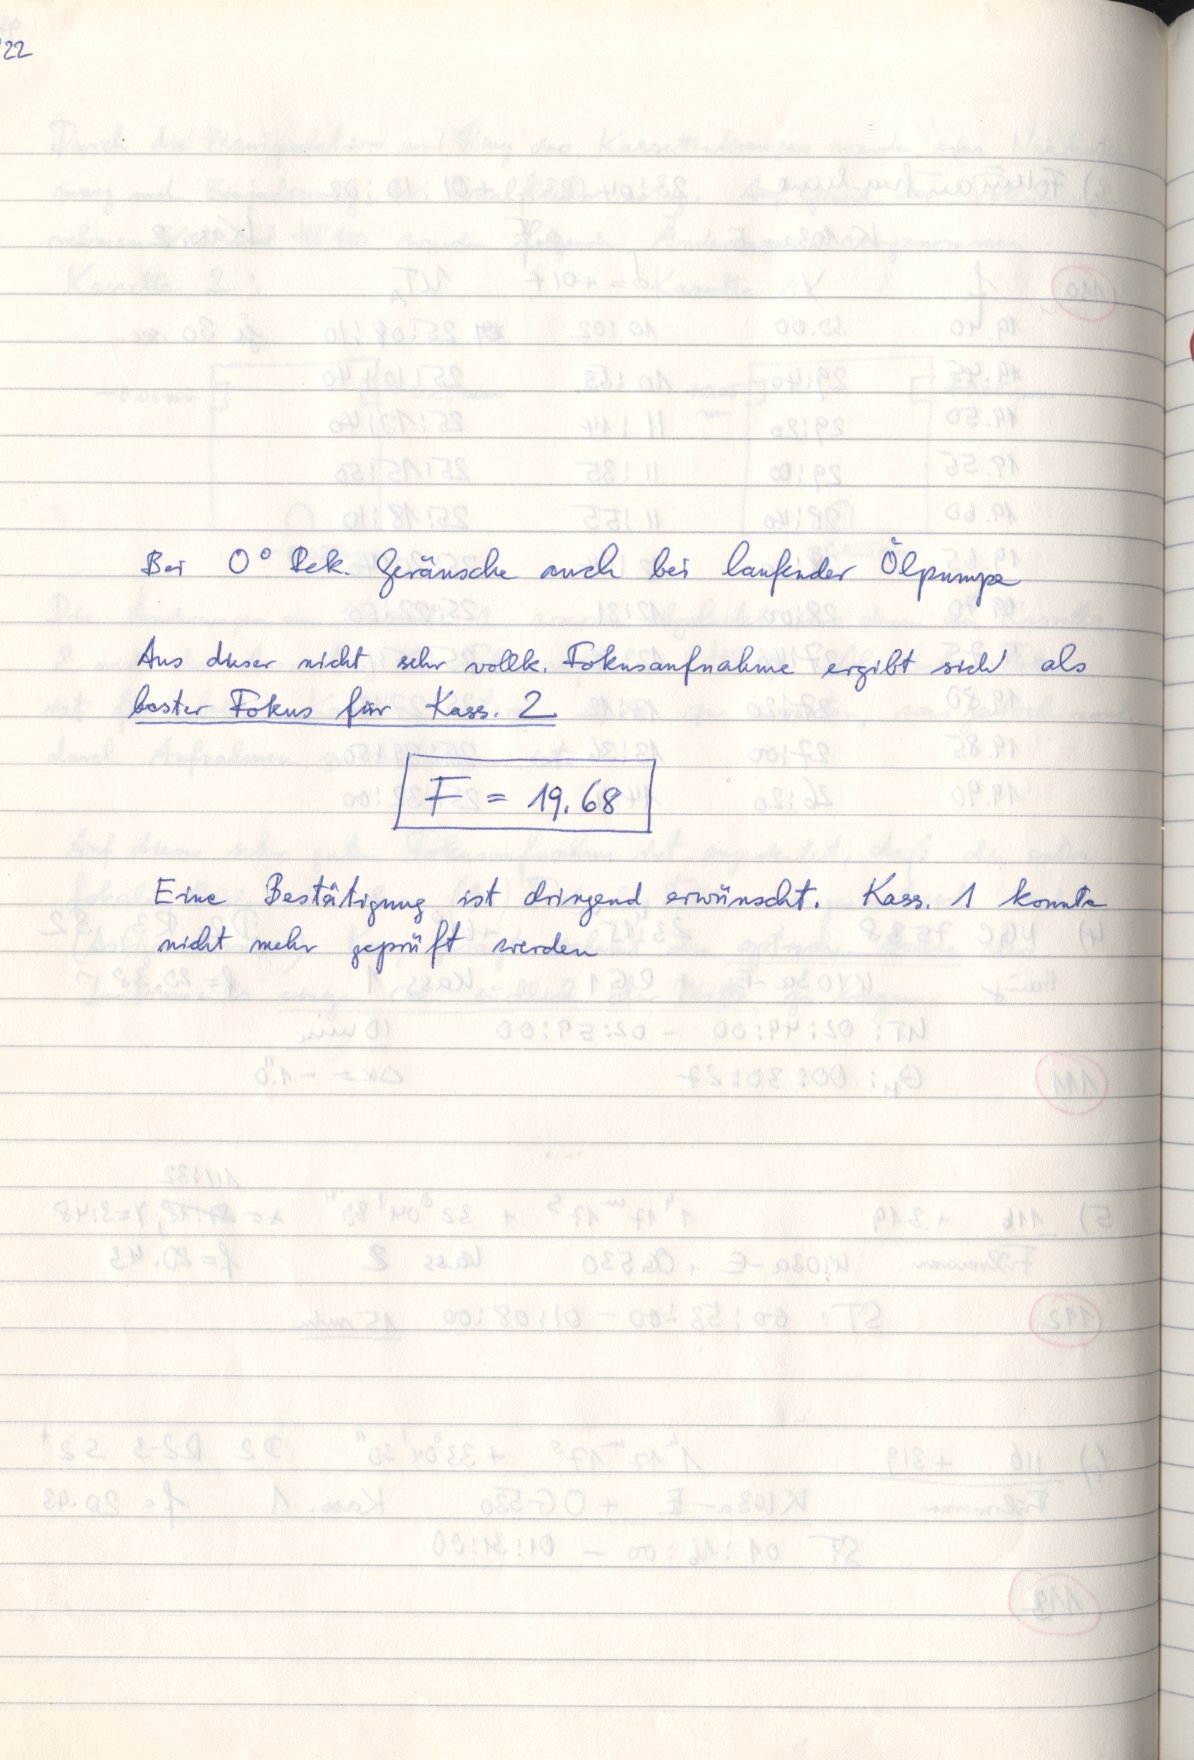 22
Bei 0° Dek. Geräusche auch bei laufender Ölpumpe
Aus dieser nicht sehr vollk. Fokusaufnahme ergibt sich als
bester Fokus für Kass. 2
F = 19.68
Eine Bestätigung ist dringend erwünscht. Kass. 1 konnte
nicht mehr geprüft werden